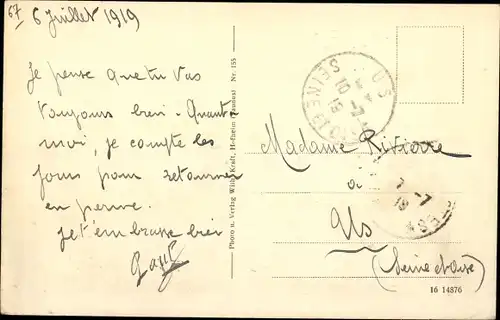 67
6 Juillet 1919
Je pense que tu vas
toujours bien. Quant
moi, je compte les
jours pour retourner
en perme.
Je t'embrasse bien
Photo u. Verlag Wilh. Kraft, Hofheim (Taunus) Nr. 155
US
SEINE-ET-OISE
Madame Rivière
a
Us
(Seine et Oise)
16 14876